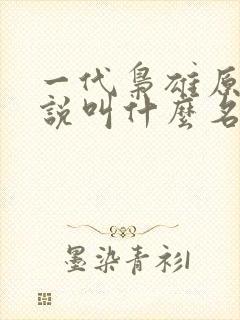 一代梟雄原
說叫什麼名
墨染青衫1